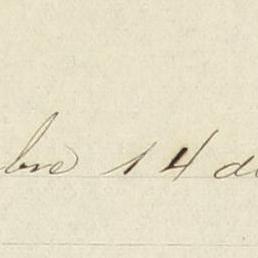 bre 14 de